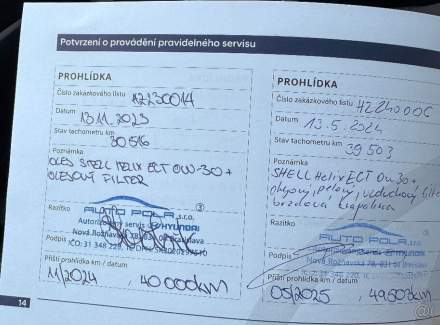 Potvrzení o provádění pravidelného servisu
PROHLÍDKA
Číslo zakázkového listu 42230014
Datum
13.11.2023
Stav tachometru km
30516
Poznámka
OLEJ SHELL HELIX ECT 0W-30 +
OLEJOVÝ FILTER
Razítko
AUTO POLA s.r.o.
Autorizovaný servis HYUNDAI
Nová Rožňavská
Podpis
Příští prohlídka km / datum
11/2024 40 000km
PROHLÍDKA
Číslo zakázkového listu
Datum
13.5.2024
Stav tachometru km
39 503
Poznámka
SHELL Helix ECT 0W30 +
olejový, pelový, vzduchový
brzdová kvapalina
Razítko
AUTO POLA s.r.o.
HYUNDAI
Podpis
Příští prohlídka km / datum
05/2025 49503km
14